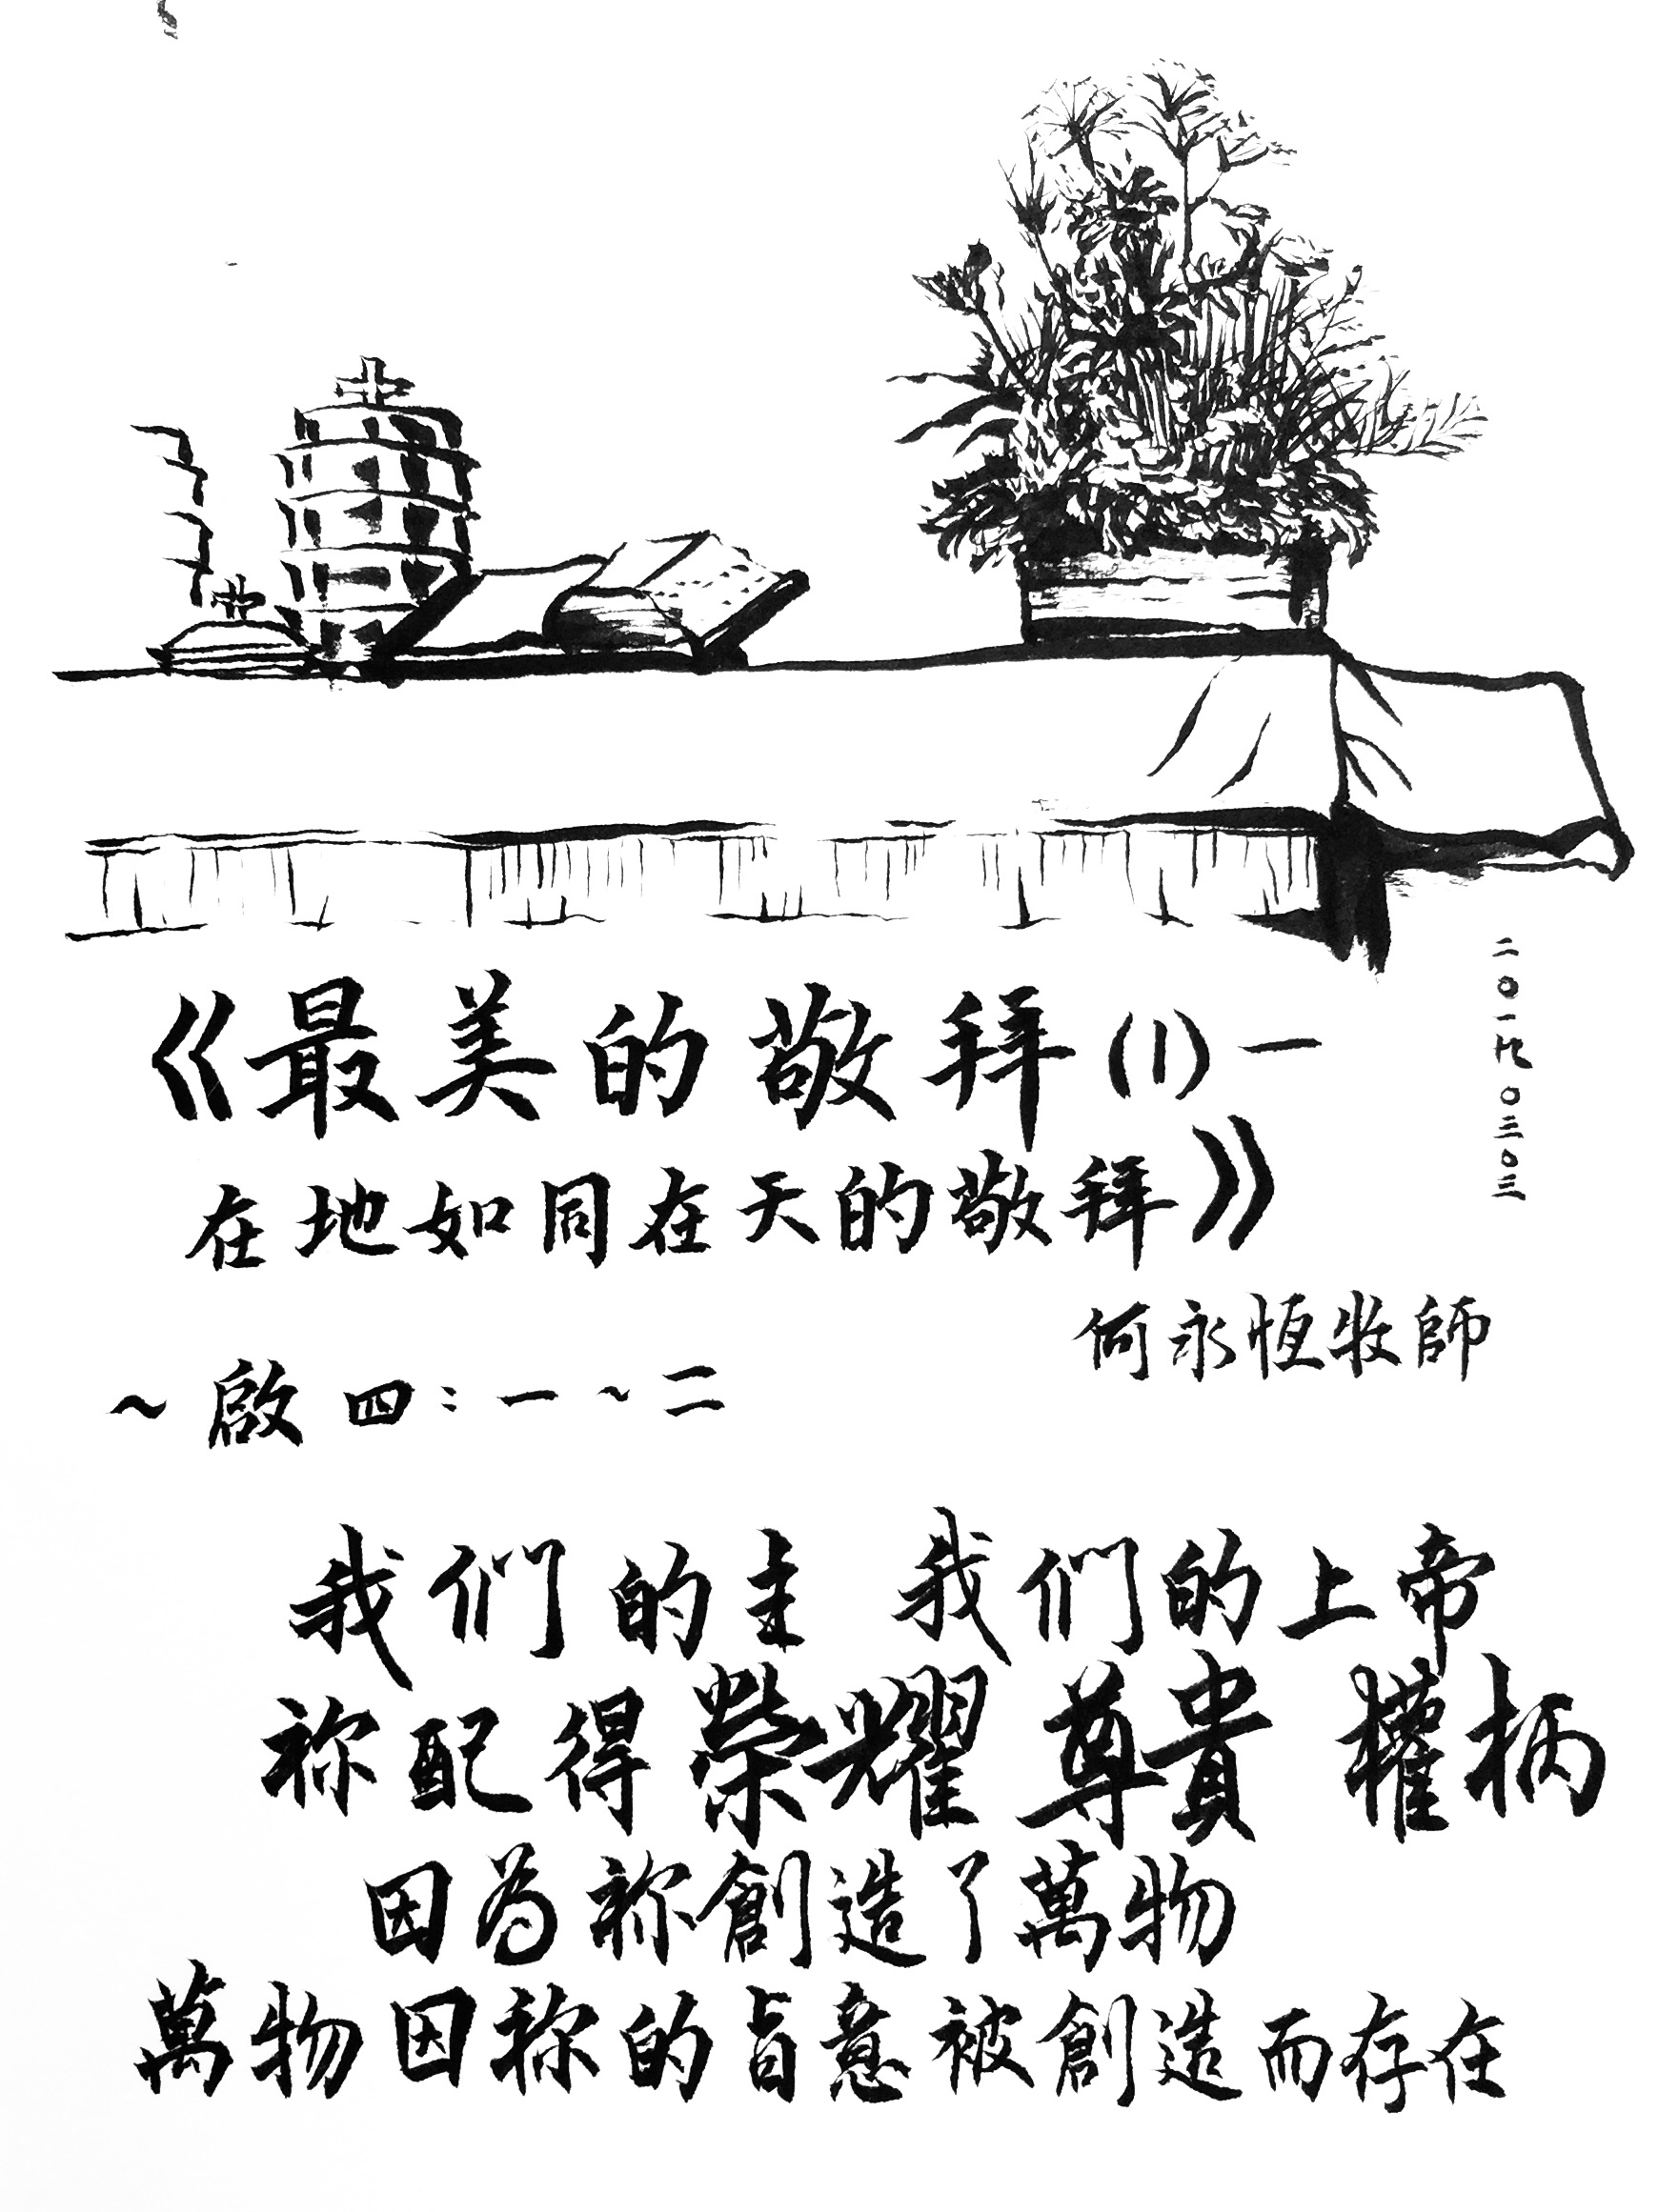 《最美的敬拜(1)—
在地如同在天的敬拜》
二〇一九〇三〇三
何永恆牧師
~啟四:一~二
我们的主 我们的上帝
祢配得榮耀 尊貴 權柄
因为祢創造了萬物
萬物因祢的旨意被創造而存在